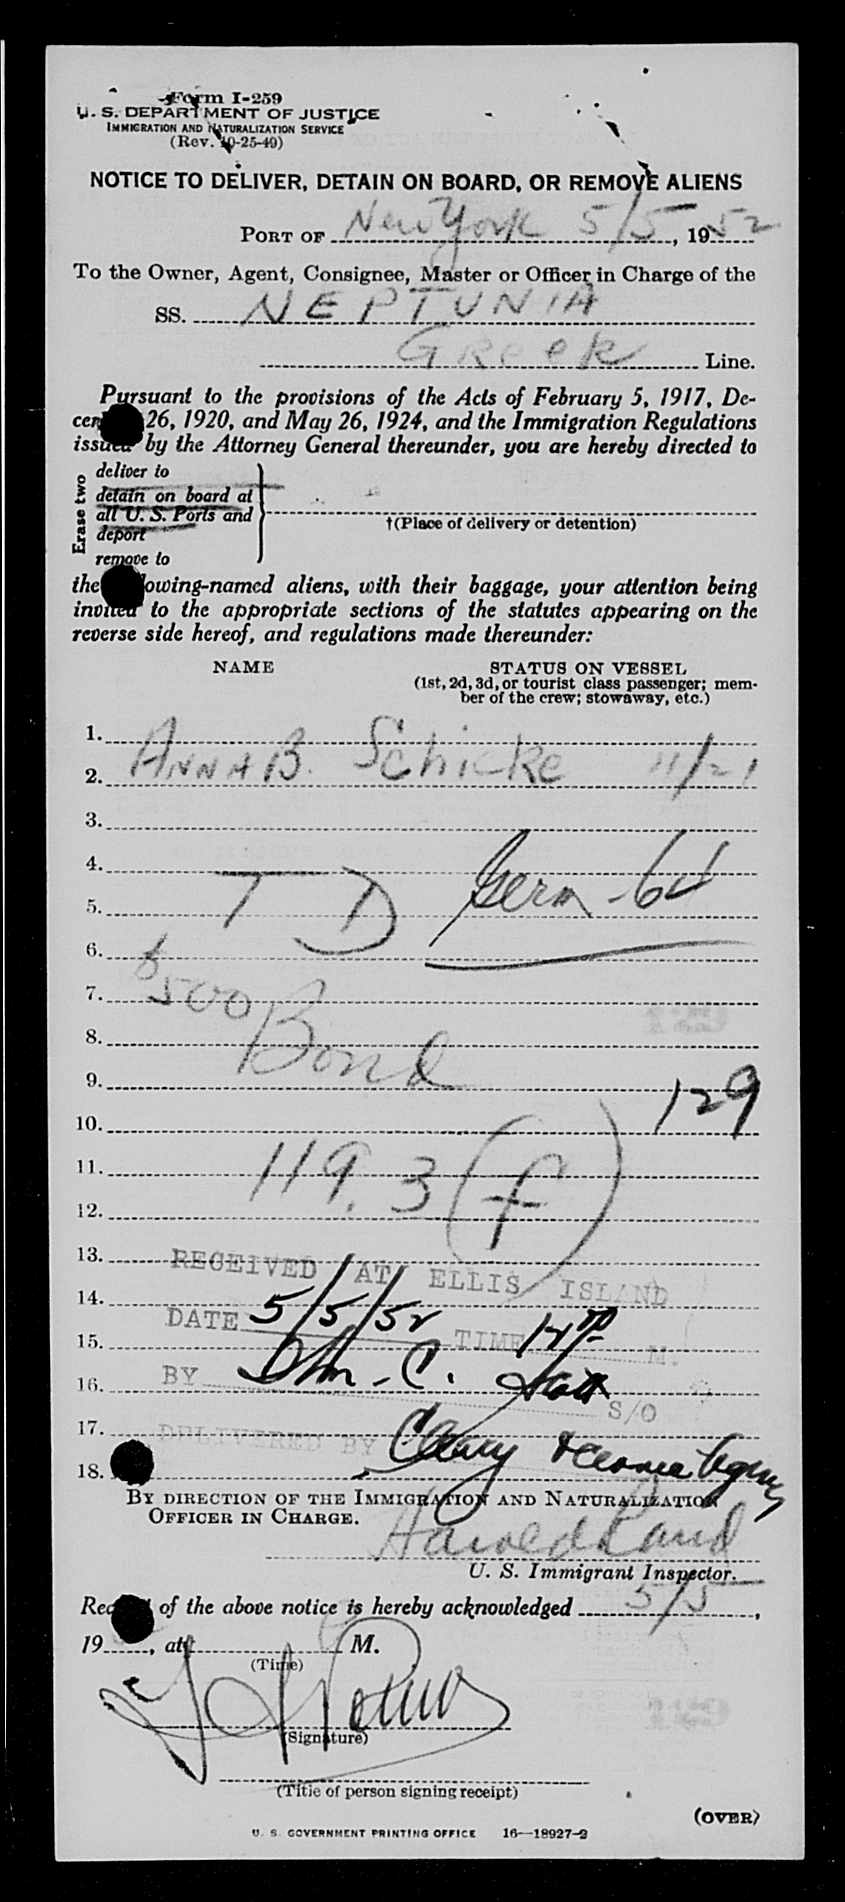 Form I-259
U. S. DEPARTMENT OF JUSTICE
IMMIGRATION AND NATURALIZATION SERVICE
(Rev. 10-25-49)
NOTICE TO DELIVER, DETAIN ON BOARD, OR REMOVE ALIENS
PORT OF New York 5/5, 1952
To the Owner, Agent, Consignee, Master or Officer in Charge of the
SS. NEPTUNIA
Greek Line.
Pursuant to the provisions of the Acts of February 5, 1917, De-
cem 26, 1920, and May 26, 1924, and the Immigration Regulations
issued by the Attorney General thereunder, you are hereby directed to
Erase two
deliver to
detain on board at
all U. S. Ports and
deport
remove to
†(Place of delivery or detention)
the owing-named aliens, with their baggage, your attention being
invited to the appropriate sections of the statutes appearing on the
reverse side hereof, and regulations made thereunder:
NAME STATUS ON VESSEL
(1st, 2d, 3d, or tourist class passenger; mem-
ber of the crew; stowaway, etc.)
1.
2. ANNA B. Schicke 11/21
3.
4.
5. T D Germ - 6d
6.
7. $500
8.
9. Bond
10. 129
11.
12. 119.3 (f)
13. RECEIVED AT ELLIS ISLAND
14. DATE 5/5/52
15. TIME M.
16. BY C. S/O
17. DELIVERED BY
18.
BY DIRECTION OF THE IMMIGRATION AND NATURALIZATION
OFFICER IN CHARGE.
Harold
U. S. Immigrant Inspector.
Rec of the above notice is hereby acknowledged 5/5,
19, at M.
(Time)
(Signature)
(Title of person signing receipt)
(OVER)
U. S. GOVERNMENT PRINTING OFFICE 16—18927-2